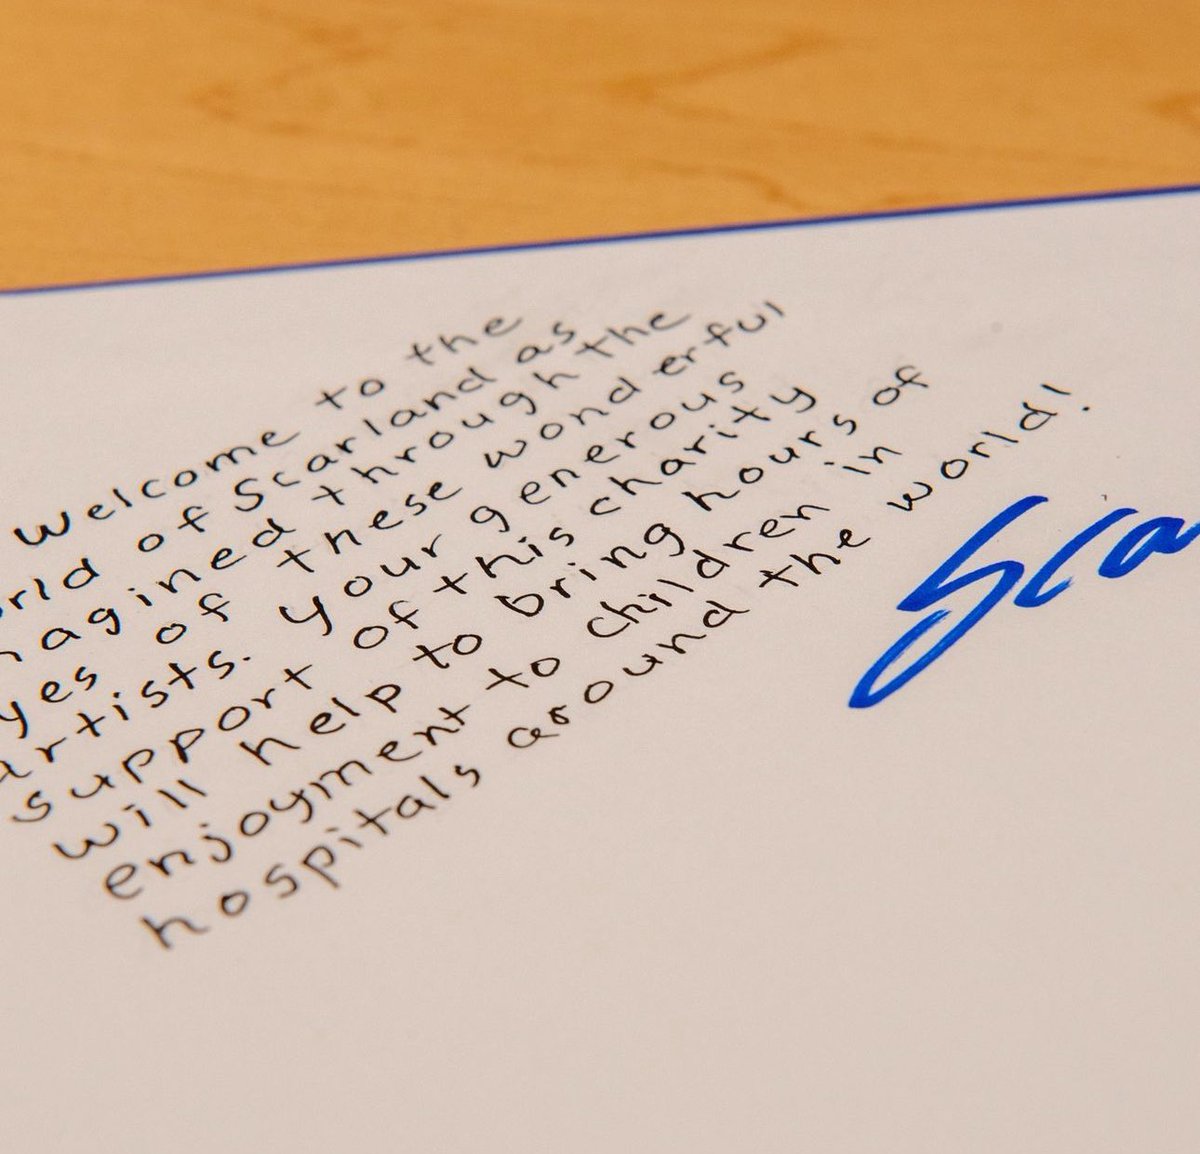 Welcome to the
orld of Scarland as
nagined through the
yes of these wonderful
artists. Your generous
support of this charity
will help to bring hours of
enjoyment to children in
hospitals around the world!
Sca